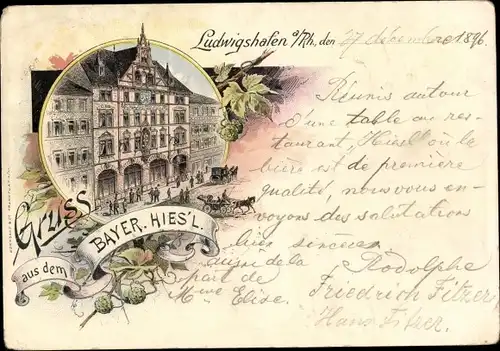 Ludwigshafen a/Rh., den 27 décembre 1896.
Réunis autour
d'une table au res-
taurant, "Hiesl" où la
bière est de première
qualité, nous vous en-
voyons des salutations
bien sincères
ainsi de la
part de
Mme Elise.
Rodolphe
Friedrich Fitzer
Hans Fitzer.
Gruss
aus dem
BAYER. HIES'L.